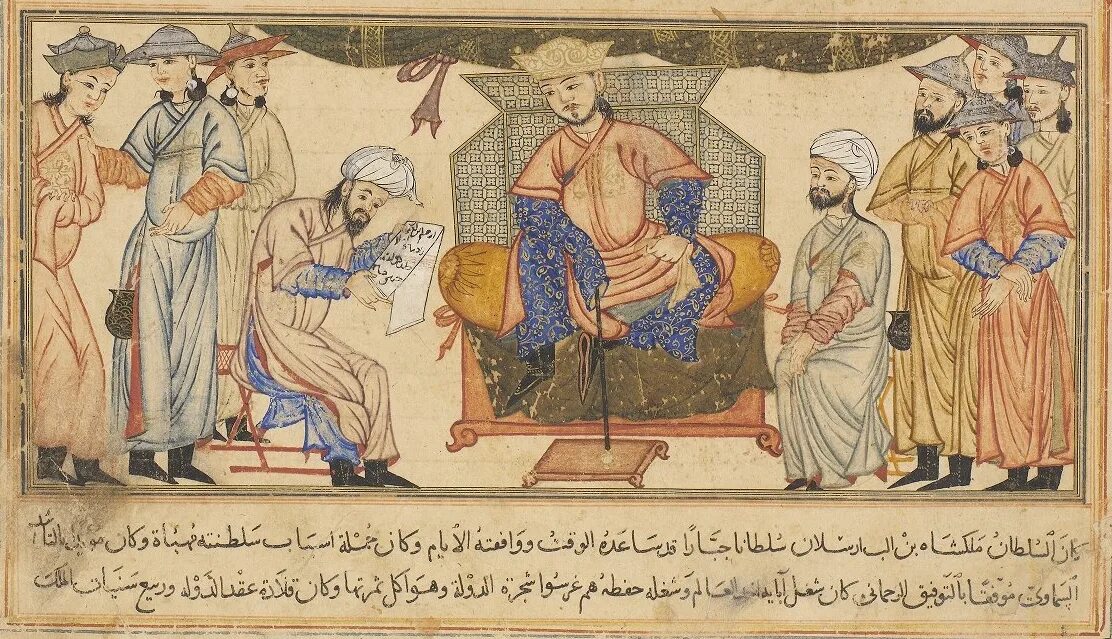 كان السلطان ملكشاه بن الب ارسلان سلطانا جبارا قد ساعده الوقت ووافقته الايام وكان جملة اسباب سلطنته مهيأة وكان
السماوي موفقا بالتوفيق الرحماني كان شغل آبايه العالم وشغله حفظه هم غرسوا شجرة الدولة وهو اكل ثمرتها وكان قلادة عقد الدولة وربيع الملك